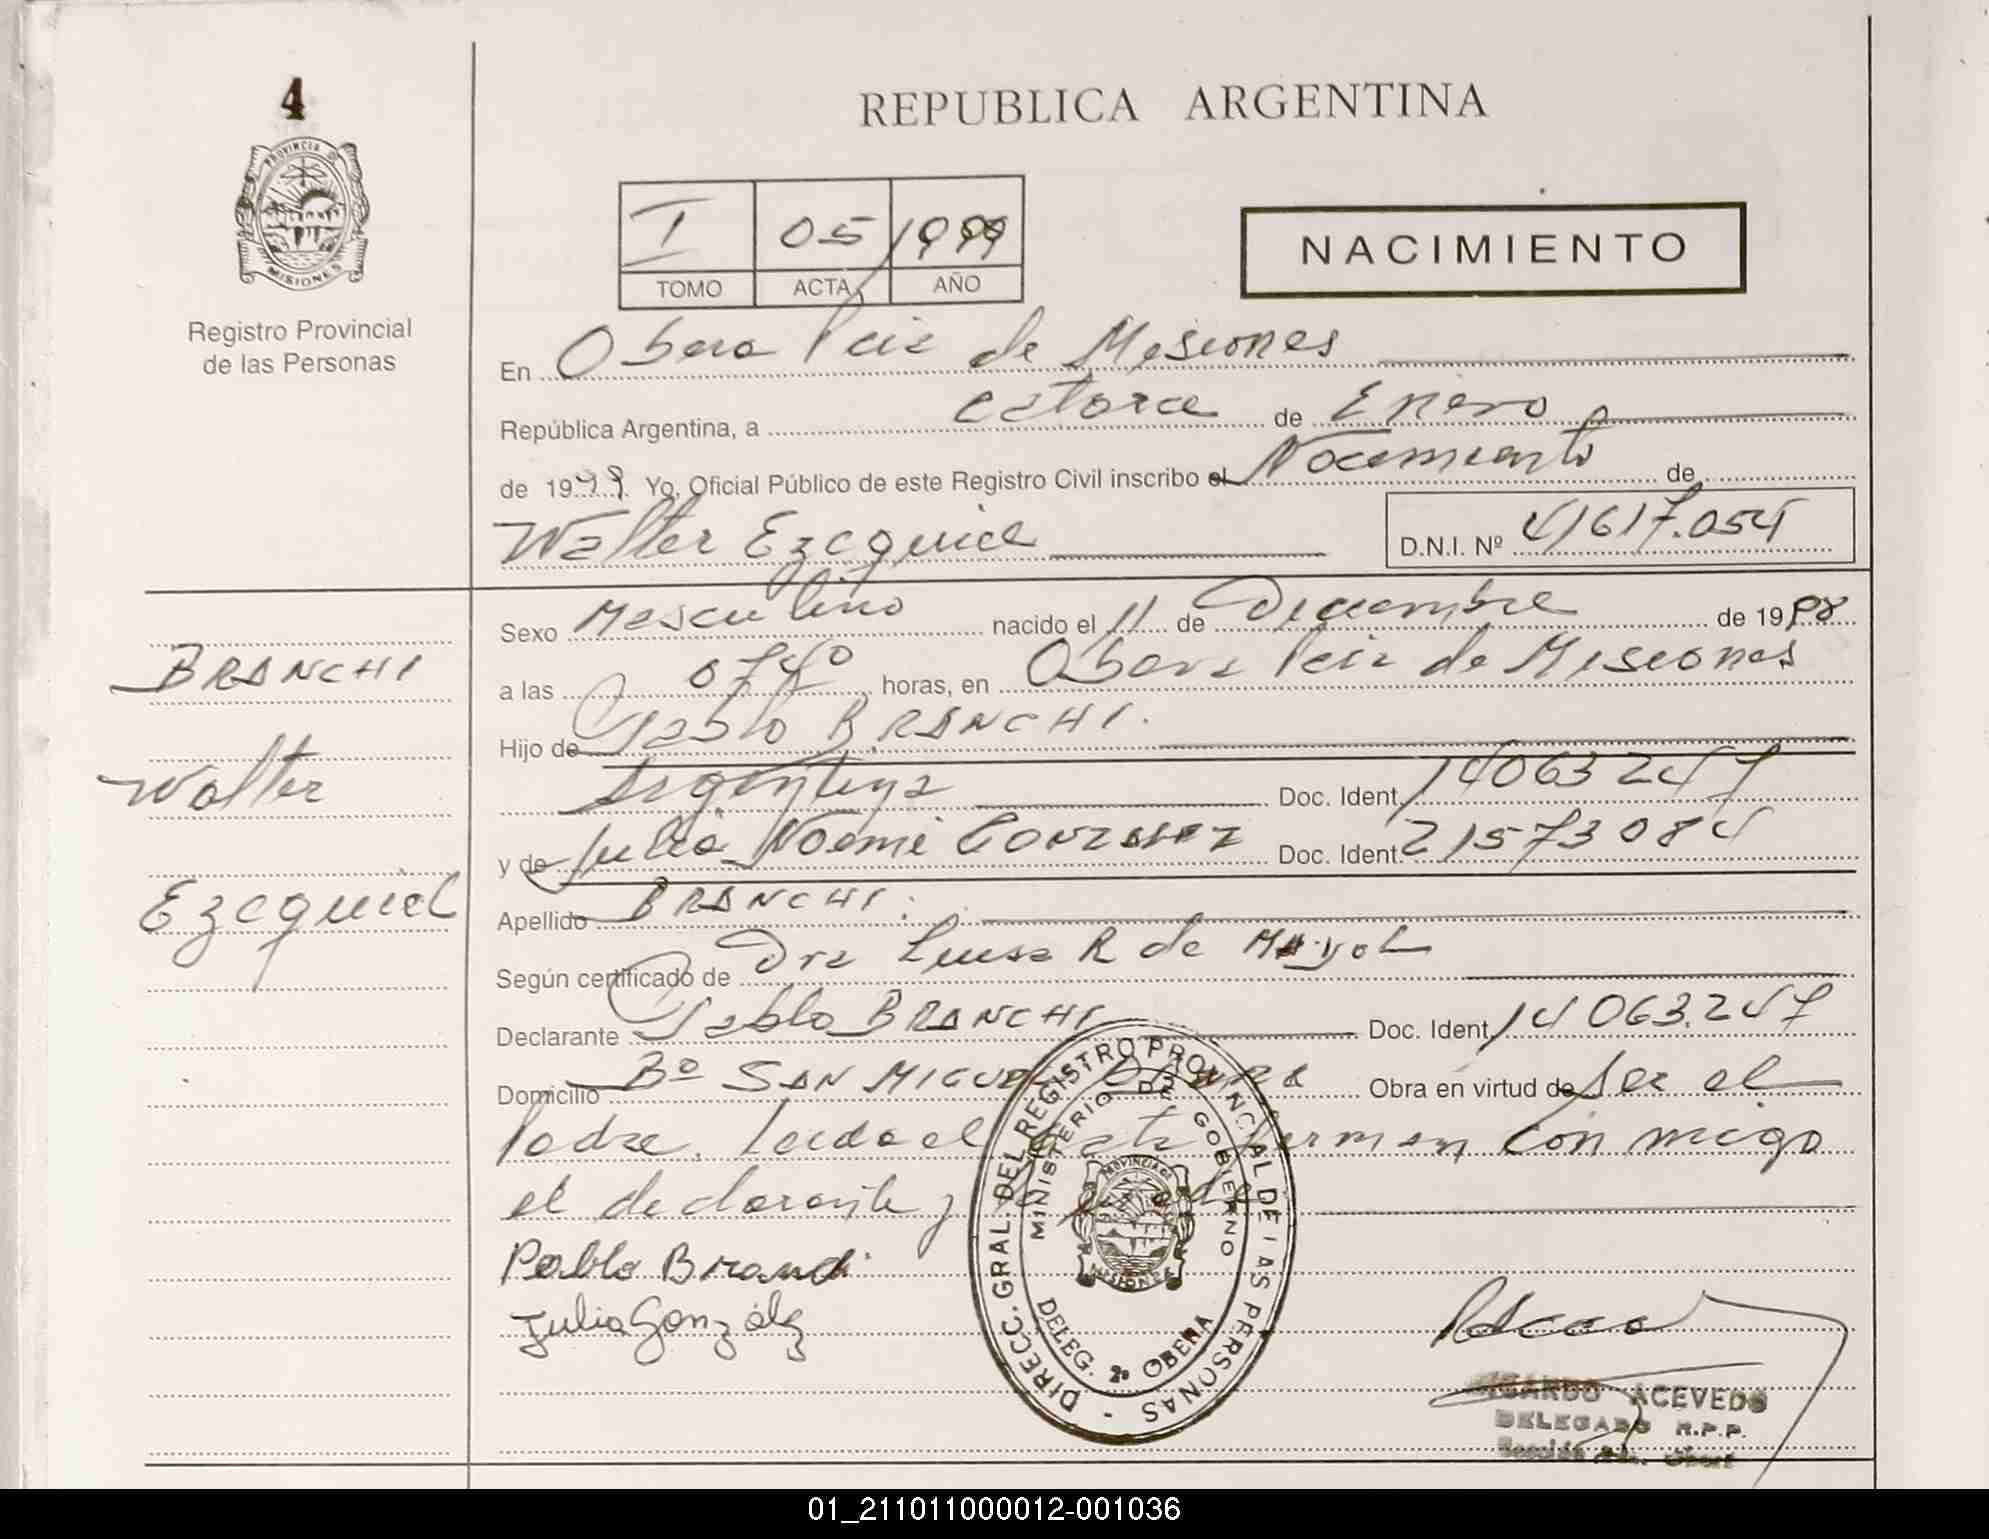 4
PROVINCIA DE
MISIONES
Registro Provincial
de las Personas
REPUBLICA ARGENTINA
I 05 1999
TOMO ACTA AÑO
NACIMIENTO
En Obera Pcia de Misiones
República Argentina, a catorce de Enero
de 1999. Yo, Oficial Público de este Registro Civil inscribo el Nacimiento de
Walter Ezequiel D.N.I. Nº 41617.054
Sexo Masculino nacido el 11 de Diciembre de 1998
a las 0740 horas, en Obera Pcia de Misiones
Hijo de Pablo BRANCHI.
Argentina Doc. Ident. 14063247
y de Julia Noemi Gonzalez Doc. Ident. 21573084
Apellido BRANCHI.
Según certificado de Dra Luisa R de Mayol
Declarante Pablo BRANCHI Doc. Ident. 14063.247
Domicilio Bº SAN MIGUEL OBERA Obra en virtud de ser el
Padre. Leida el acta firman con migo
el declarante y
Pablo Branchi
Julia González
BRANCHI
Walter
Ezequiel
DIRECC. GRAL. DEL REGISTRO PROVINCIAL DE LAS PERSONAS -
MINISTERIO DE GOBIERNO
PROVINCIA DE
MISIONES
DELEG. 2ª OBERA
RICARDO ACEVEDO
DELEGADO R.P.P.
Sección 2da. Oberá
01_211011000012-001036